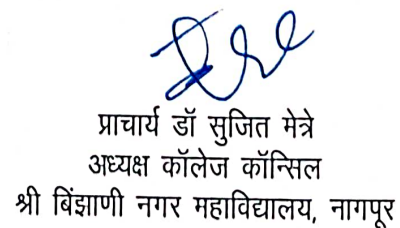 प्राचार्य डॉ सुजित मेत्रे
अध्यक्ष कॉलेज कॉन्सिल
श्री बिंझाणी नगर महाविद्यालय, नागपूर